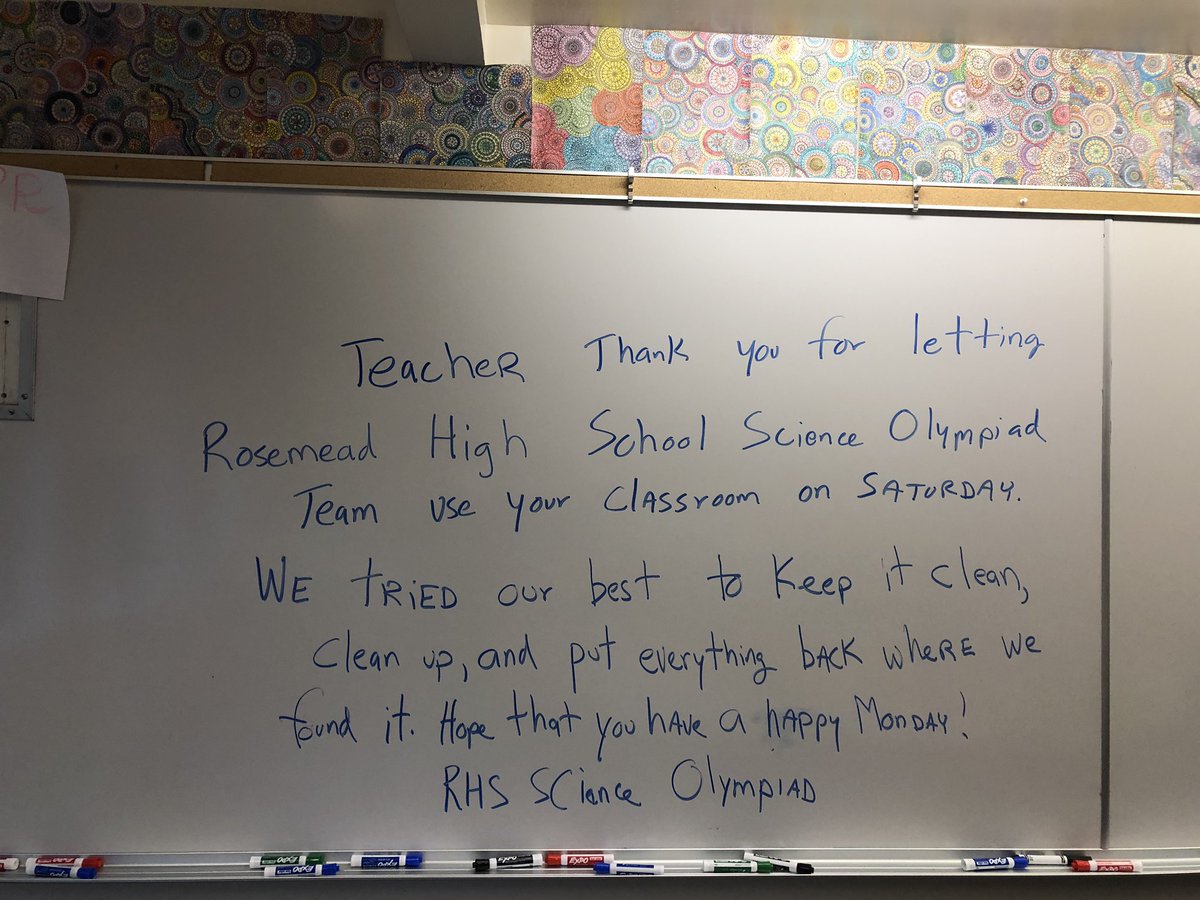 Teacher Thank you for letting
Rosemead High School Science Olympiad
Team use your classroom on SATURDAY.
WE TRiED our best to Keep it clean,
clean up, and put everything BACK where we
found it. Hope that you have a happy Monday!
RHS Science Olympiad
PR
EXPO
EXPO
EXPO
EXPO
EXPO
EXPO